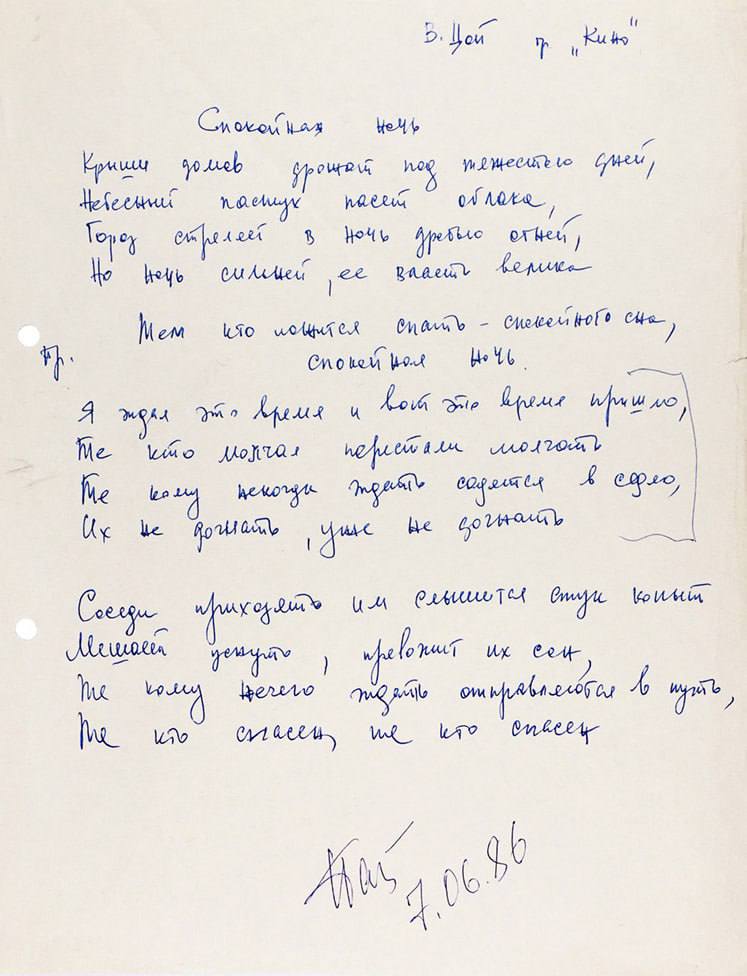 В. Цой гр „Кино"
Спокойная ночь
Крыши домов дрожат под тяжестью дней,
Небесный пастух пасет облака,
Город стреляет в ночь дробью огней,
Но ночь сильней, ее власть велика
Тем кто ложится спать - спокойного сна,
Пр.
спокойная ночь.
Я ждал это время и вот это время пришло,
Те кто молчал перестали молчать
Те кому некогда ждать садятся в седло,
Их не догнать, уже не догнать
Соседи приходят им слышится стук копыт
Мешает уснуть, тревожит их сон,
Те кому нечего ждать отправляются в путь,
Те кто спасен, те кто спасен
7.06.86